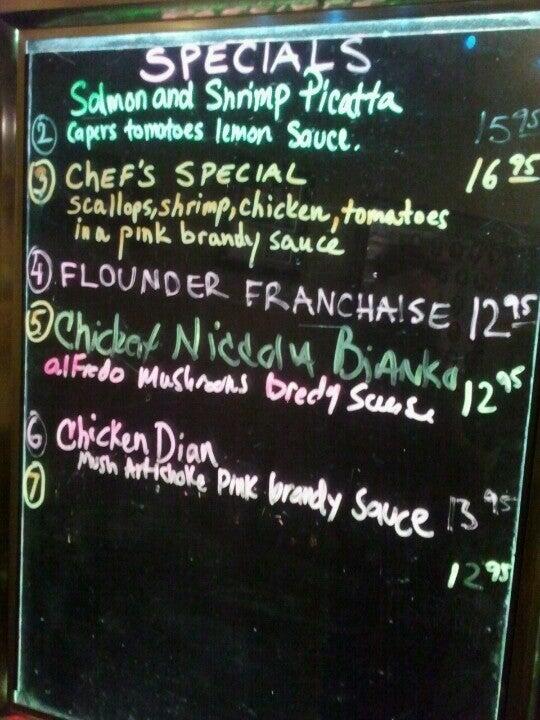 SPECIALS
Salmon and Shrimp Picatta
② Capers tomatoes lemon Sauce. 15 95
③ CHEF'S SPECIAL 16 95
scallops, shrimp, chicken, tomatoes
in a pink brandy sauce
④ FLOUNDER FRANCHAISE 12 95
⑤ Bianko
alFredo Mushrooms 12 95
⑥ Chicken Dian
Mush Artichoke Pink brandy Sauce 13 95
⑦
12 95